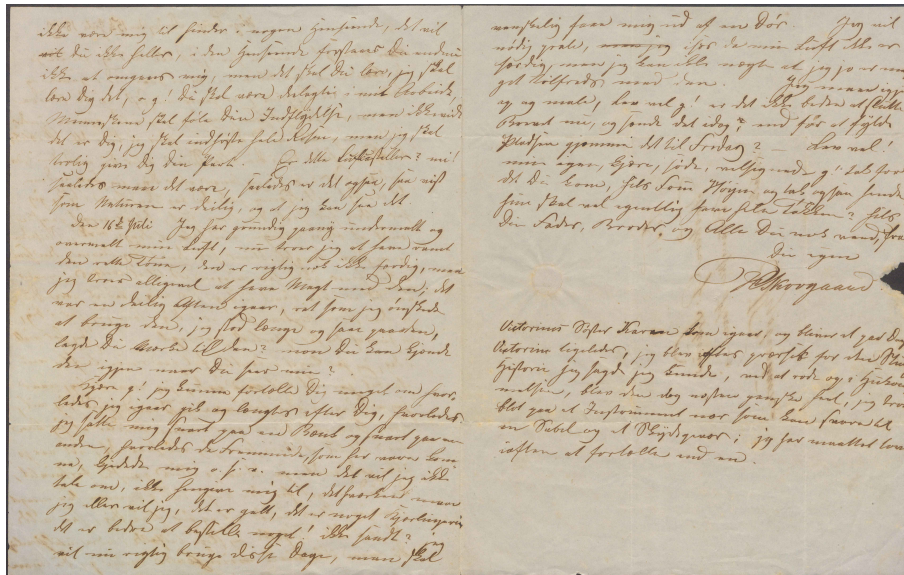 ikke være mig til Hinder i nogen Henseende, det vil
vil Du ikke heller, i den Henseende forstaaer Du endnu
ikke at omgaaes mig, men det skal Du lære, jeg skal
lære Dig det, o g! Du skal være deelagtig i mit Arbeide,
Menneskene skal føle Din Indflydelse, men ikke vide
det er Dig, jeg skal indhøste hele Roesen, men jeg skal
ærlig give Dig Din Part. Er dette Luftcasteller? nei!
saaledes maa det være, saaledes er det ogsaa, saa vist
som Naturen er deilig, og at jeg kan see det
Den 16de Juli Jeg har grundig igang undermalt og
overmalt min Luft, nu troer jeg at have ramt
den rette Tone, den er rigtig nok ikke færdig, men
jeg troer allegavel at have Magt med den; det
var en deilig Aften igaar, ret som jeg ønskede
at bruge den, jeg stod længe og saae paa den,
lagde Du Mærke til den? mon Du kan kjende
den igjen naar Du seer min?
Kjære g! jeg kunne fortælle Dig meget om hvor
ledes jeg igaar gik og længtes efter Dig, hvorledes
jeg satte mig snart paa en Bænk og snart paa en
anden, hvorledes de Fremmede, som her vare kom
ne, kjedede mig o. s. v. men det vil jeg ikke
tale om, ikke hengive mig til, det
jeg eller vil jeg, det er galt, det er noget
det er bedre at bestille noget! ikke sandt? jeg
vil nu rigtig bruge disse Dage, man skal
vanskelig faae mig ud af en Dør. Jeg vil
nødig prale, især da min Luft ikke er
færdig, men jeg kan ikke nægte at jeg jo er me
get tilfreds med den. Jeg maa
op og male, Lev vel g! er det ikke bedre at slutte
Brevet nu, og sende det idag? end for at fylde
Pladsen gjemme det til Fredag? — Lev vel!
min egen, kjere, søde, velsignede g! tak fordi
at Du kom, hils Tom Høyen og tak ogsaa hende
hun skal vel egentlig have hele Takken? hils
Din Fader, Broder, og Alle Du nok veed, fra
Din egen
P C Skovgaard
Victorines Søster Karen kom igaar, og bliver et par Da
Victorine ligeledes, jeg blev
Historie jeg sagde jeg kunde, ved at rode op i Hukom
melsen, blev den dog næsten ganske heel, jeg
blot paa et Instrument
en Sabel og et Skydegevær; jeg har maattet love
iaften at fortælle end en.